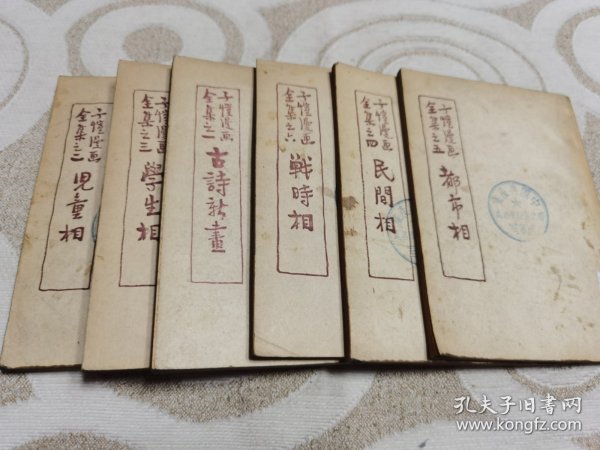 子愷漫画
全集之二
児童相
子愷漫画
全集之三
學生相
子愷漫画
全集之一
古詩新畫
子愷漫画
全集之六
戰時相
子愷漫画
全集之四
民間相
子愷漫画
全集之五
都市相
孔夫子旧书网
www.kongfz.com